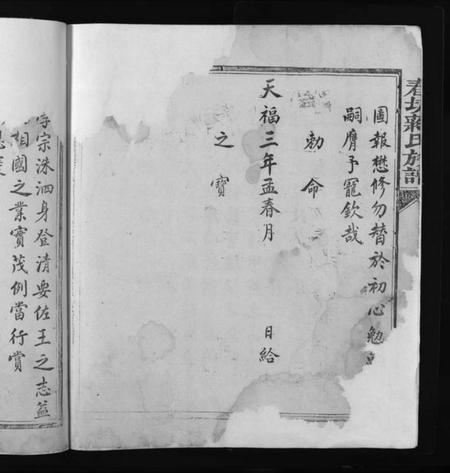 春坊蔣氏族譜
圖報懋修勿替於初心勉
嗣膺予寵欽哉
勅命
天福三年孟春月 日給
之寶
宗洙泗身登清要佐王之志益
相國之業實茂例當行賞